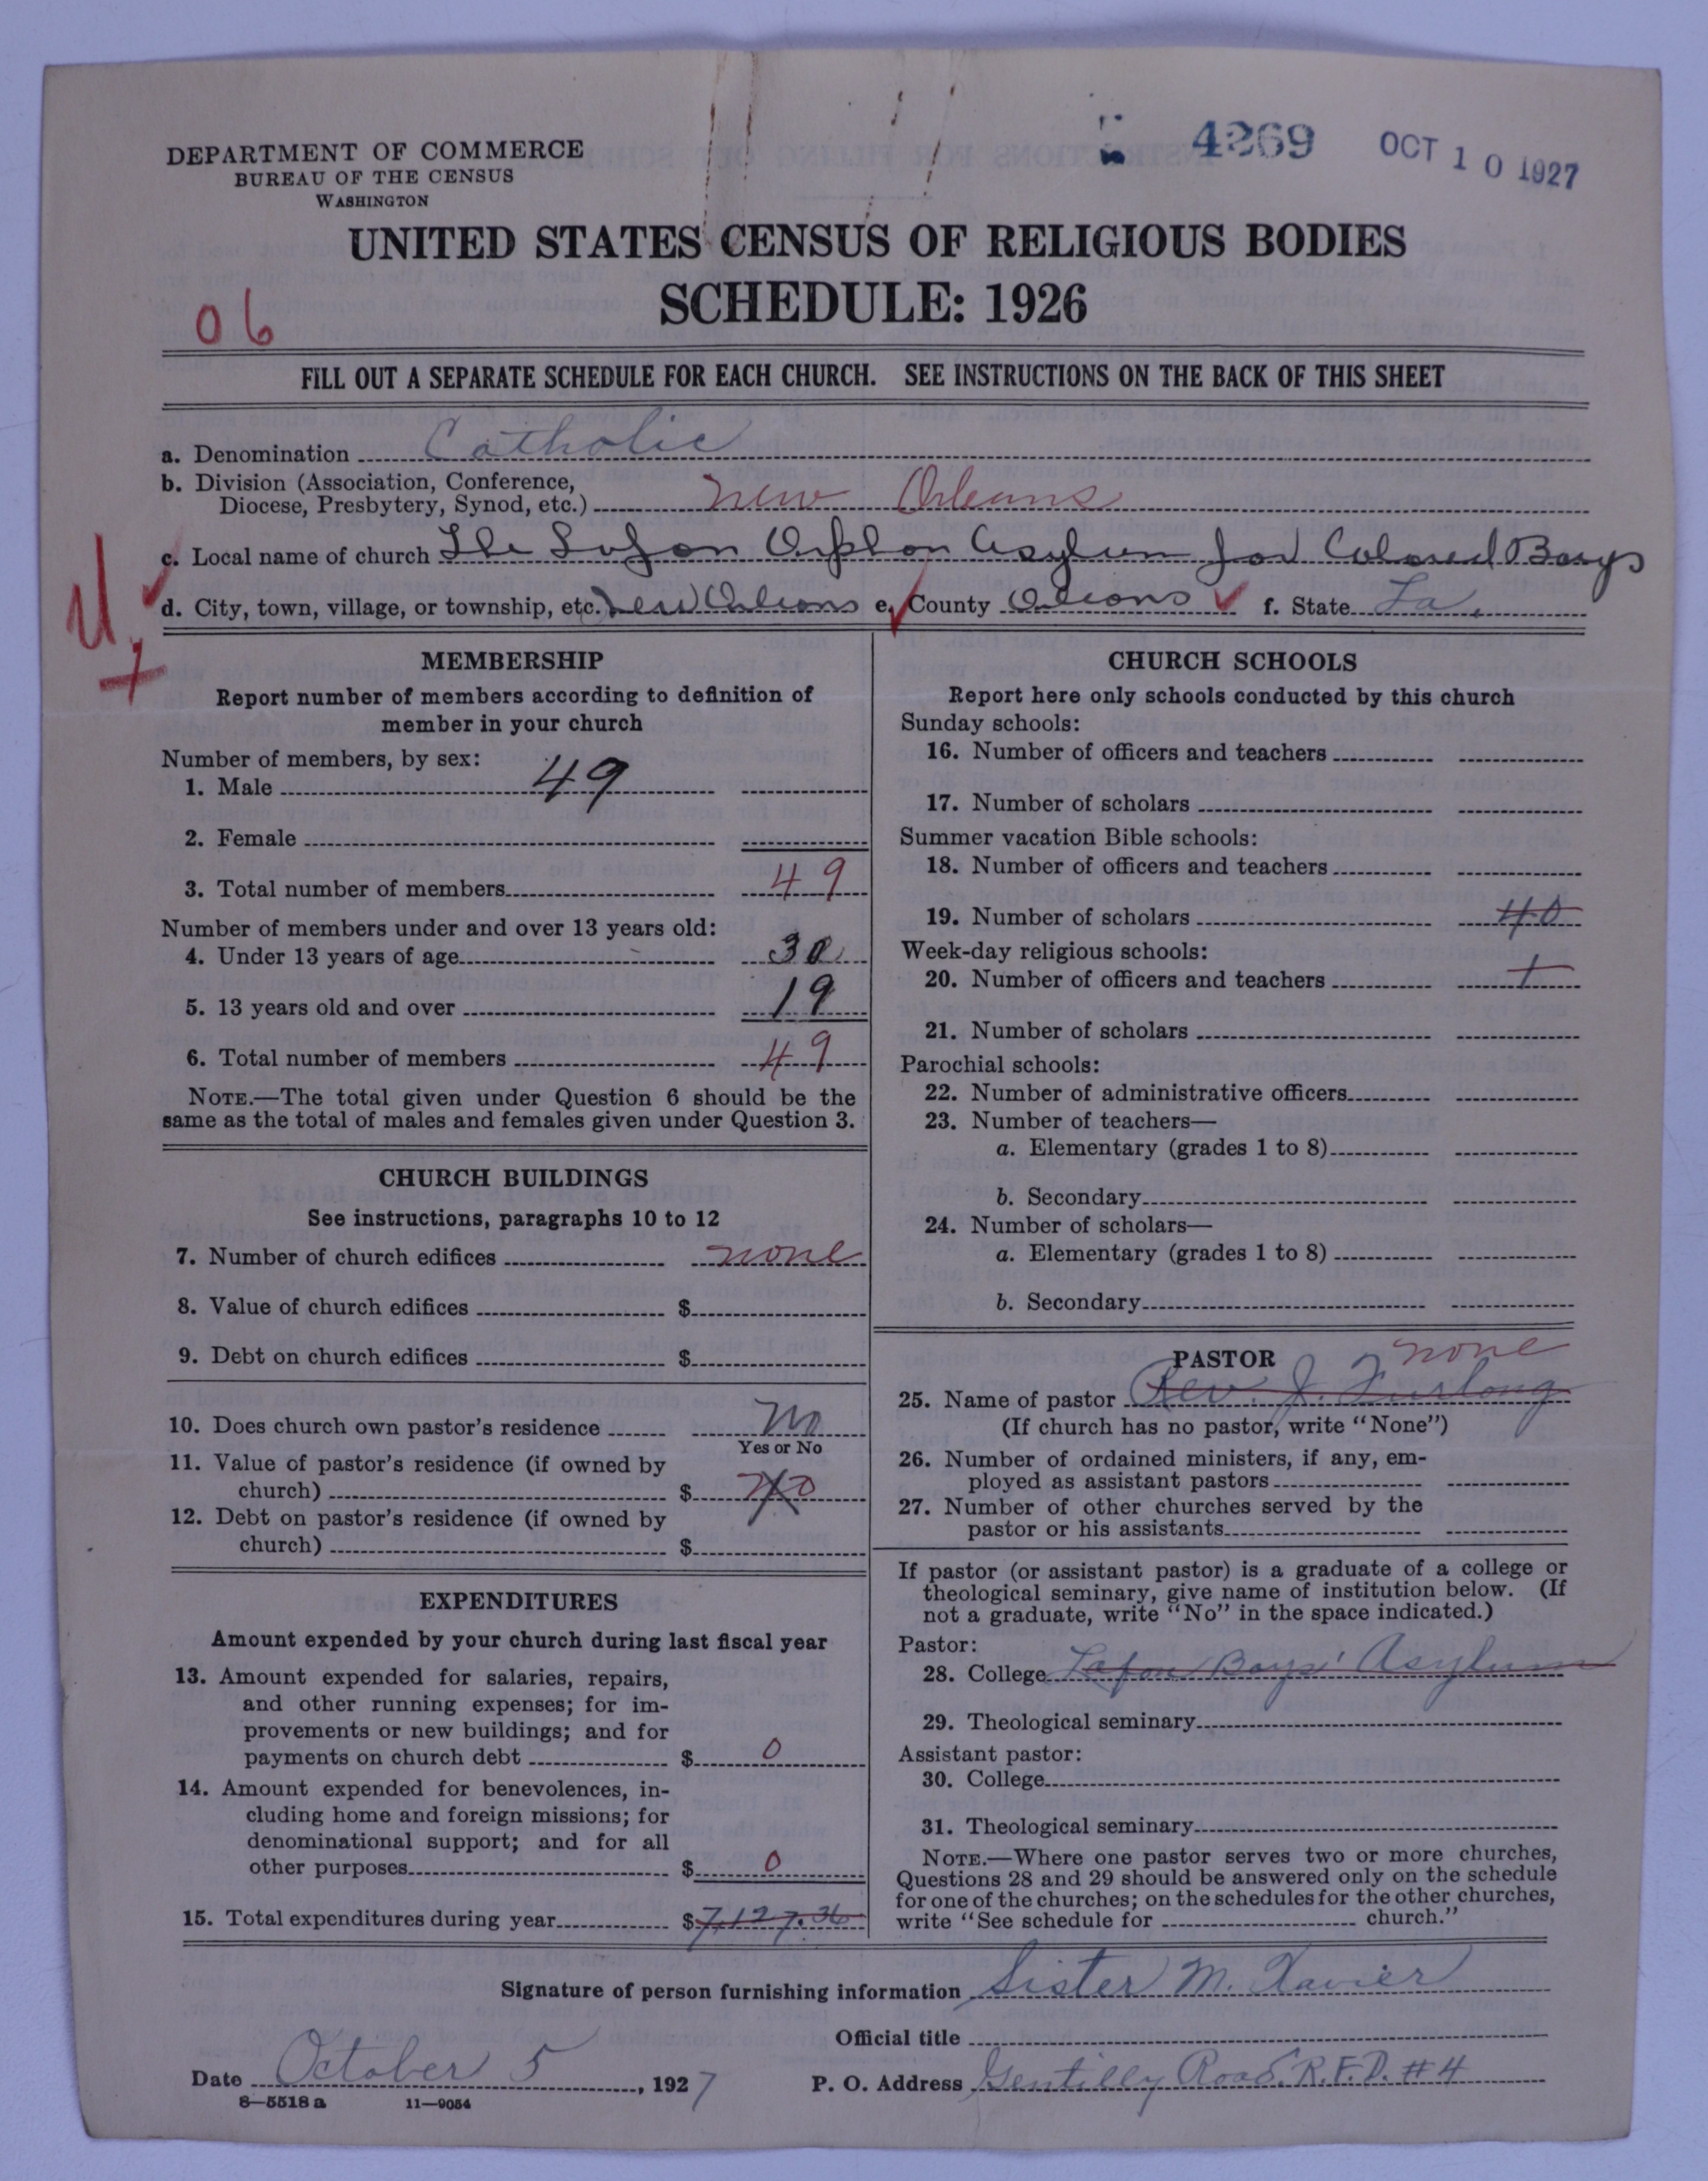 DEPARTMENT OF COMMERCE
BUREAU OF THE CENSUS
WASHINGTON
4269 OCT 10 1927
UNITED STATES CENSUS OF RELIGIOUS BODIES
SCHEDULE: 1926
06
FILL OUT A SEPARATE SCHEDULE FOR EACH CHURCH. SEE INSTRUCTIONS ON THE BACK OF THIS SHEET
a. Denomination Catholic
b. Division (Association, Conference,
Diocese, Presbytery, Synod, etc.) New Orleans
c. Local name of church The Lafon Orphan Asylum for Colored Boys
d. City, town, village, or township, etc. New Orleans e. County Orleans f. State La.
MEMBERSHIP
Report number of members according to definition of
member in your church
Number of members, by sex:
1. Male 49
2. Female
3. Total number of members 49
Number of members under and over 13 years old:
4. Under 13 years of age 30
5. 13 years old and over 19
6. Total number of members 49
NOTE.—The total given under Question 6 should be the
same as the total of males and females given under Question 3.
CHURCH BUILDINGS
See instructions, paragraphs 10 to 12
7. Number of church edifices none
8. Value of church edifices $
9. Debt on church edifices $
10. Does church own pastor's residence No
Yes or No
11. Value of pastor's residence (if owned by
church) $ No
12. Debt on pastor's residence (if owned by
church) $
EXPENDITURES
Amount expended by your church during last fiscal year
13. Amount expended for salaries, repairs,
and other running expenses; for im-
provements or new buildings; and for
payments on church debt $ 0
14. Amount expended for benevolences, in-
cluding home and foreign missions; for
denominational support; and for all
other purposes $ 0
15. Total expenditures during year $ 7,127.36
CHURCH SCHOOLS
Report here only schools conducted by this church
Sunday schools:
16. Number of officers and teachers
17. Number of scholars
Summer vacation Bible schools:
18. Number of officers and teachers
19. Number of scholars 40
Week-day religious schools:
20. Number of officers and teachers
21. Number of scholars
Parochial schools:
22. Number of administrative officers
23. Number of teachers—
a. Elementary (grades 1 to 8)
b. Secondary
24. Number of scholars—
a. Elementary (grades 1 to 8)
b. Secondary
PASTOR none
25. Name of pastor Rev. J. Furlong
(If church has no pastor, write "None")
26. Number of ordained ministers, if any, em-
ployed as assistant pastors
27. Number of other churches served by the
pastor or his assistants
If pastor (or assistant pastor) is a graduate of a college or
theological seminary, give name of institution below. (If
not a graduate, write "No" in the space indicated.)
Pastor:
28. College Lafon Boys' Asylum
29. Theological seminary
Assistant pastor:
30. College
31. Theological seminary
NOTE.—Where one pastor serves two or more churches,
Questions 28 and 29 should be answered only on the schedule
for one of the churches; on the schedules for the other churches,
write "See schedule for church."
Signature of person furnishing information Sister M. Xavier
Official title
Date October 5, 1927 P. O. Address Gentilly Road. R.F.D. #4
8—5518 a 11—9054